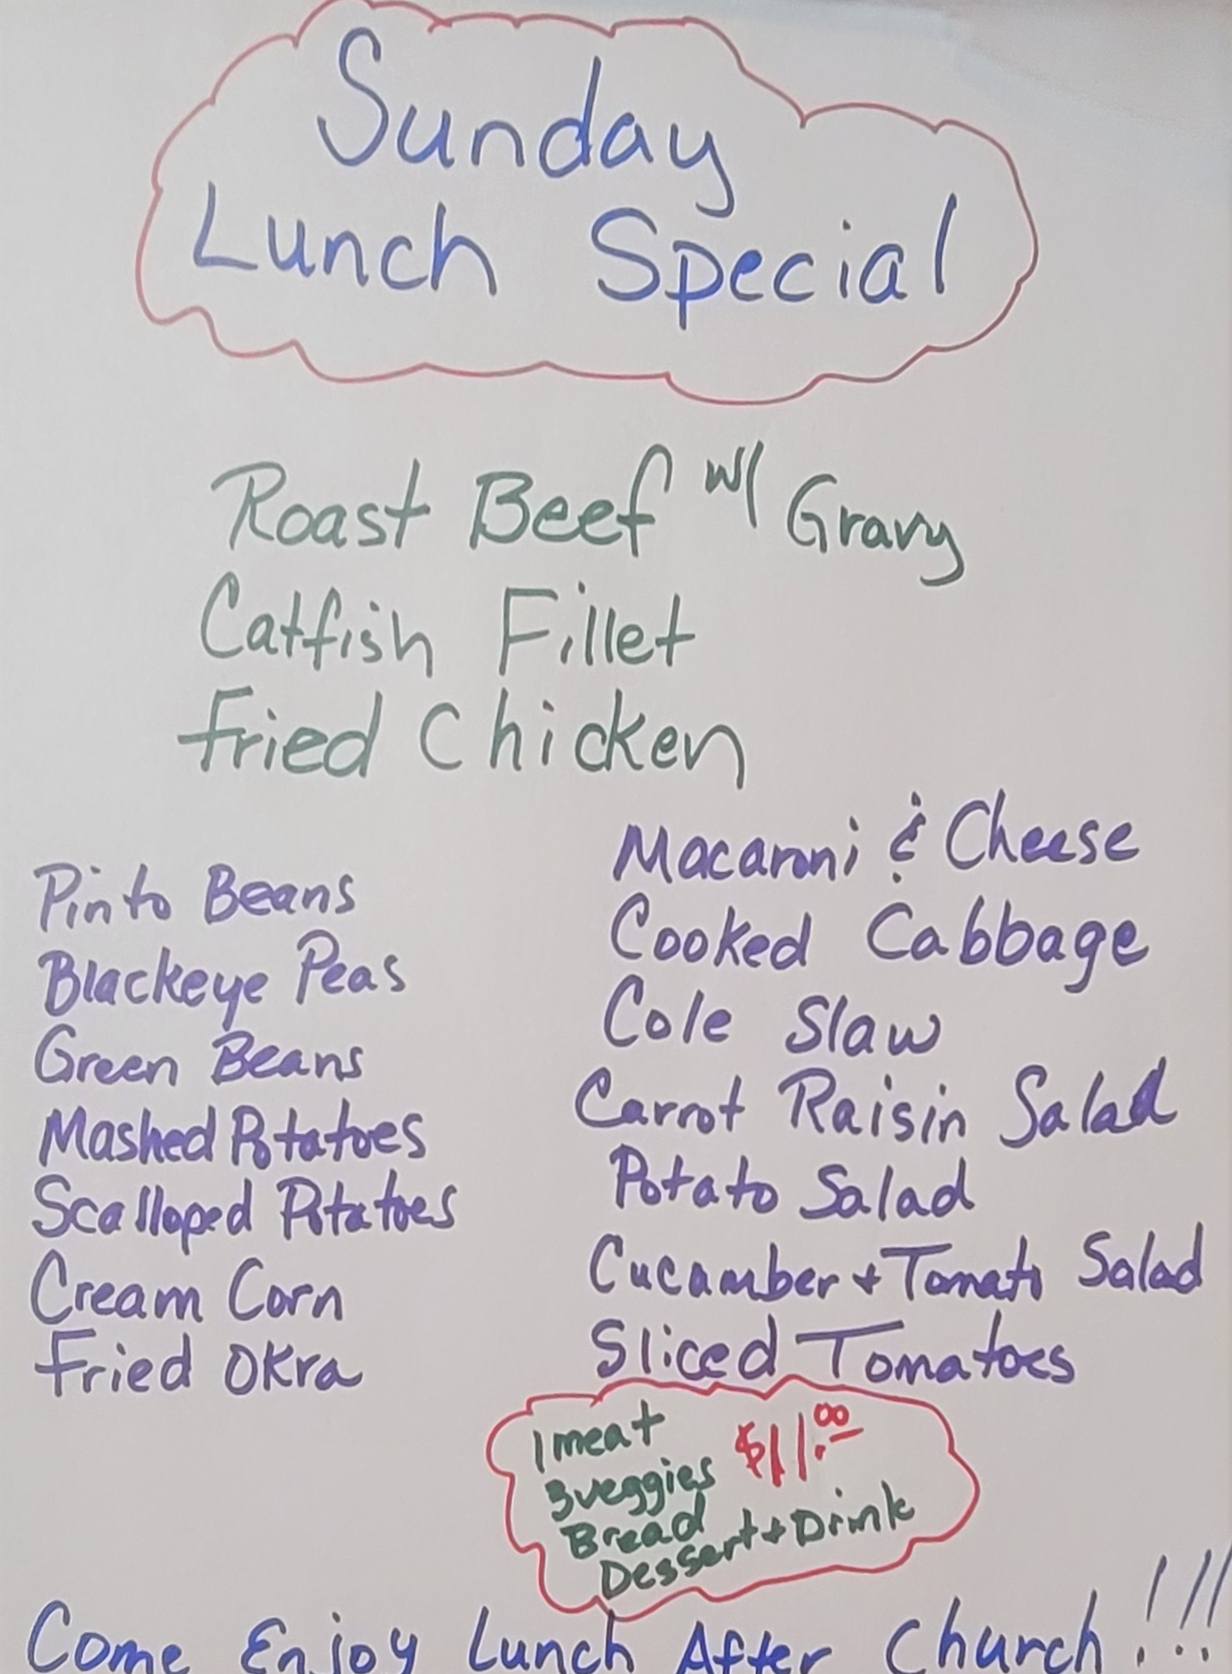 Sunday
Lunch Special
Roast Beef w/ Gravy
Catfish Fillet
Fried Chicken
Pinto Beans
Blackeye Peas
Green Beans
Mashed Potatoes
Scalloped Potatoes
Cream Corn
Fried Okra
Macaroni & Cheese
Cooked Cabbage
Cole Slaw
Carrot Raisin Salad
Potato Salad
Cucumber + Tomato Salad
Sliced Tomatoes
1 meat $11.00
3 veggies
Bread
Dessert + Drink
Come Enjoy Lunch After Church!!!